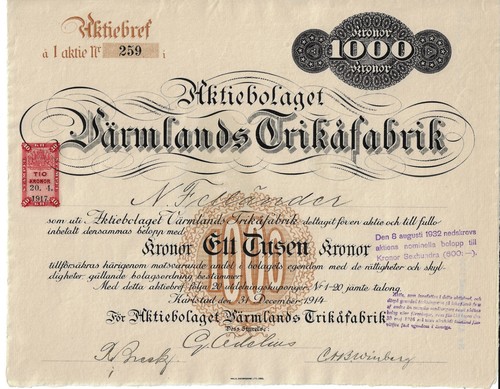 Aktiebref
à 1 aktie Nr 259
Kronor
1000
Kronor
Aktiebolaget
Värmlands Trikåfabrik
TIO
KRONOR
20. 4.
1917
N.
som uti Aktiebolaget Värmlands Trikåfabrik deltagit för en aktie och till fullo
inbetalt densammas belopp med
Kronor Ett Tusen Kronor
1000
tillförsäkras härigenom motsvarande andel i bolagets egendom med de rättigheter och skyl-
digheter gällande bolagsordning bestämmer.
Med detta aktiebref följa 20 utdelningskuponger No 1-20 jämte talong.
Karlstad den 31 December 1914
För Aktiebolaget Värmlands Trikåfabrik
Dess Styrelse:
Den 8 augusti 1932 nedskrevs
aktiens nominella belopp till
Kronor Sexhundra (600:—).